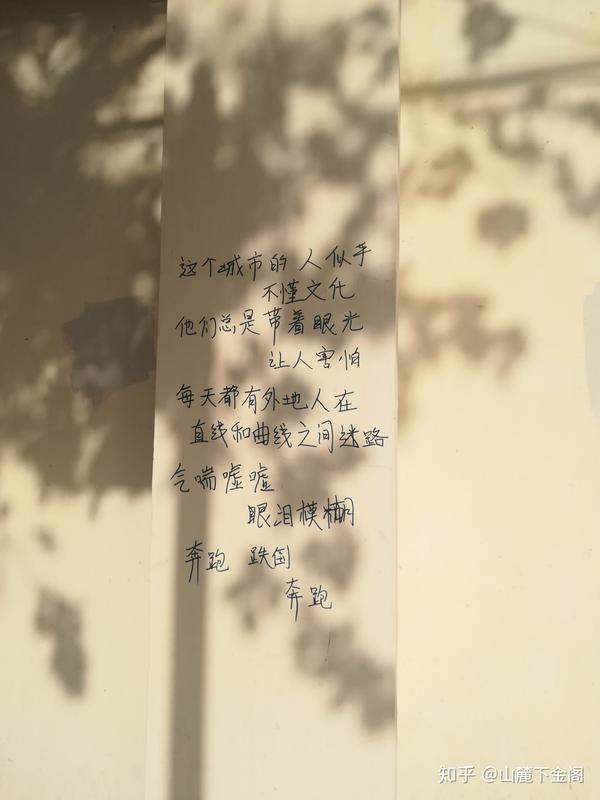 这个城市的人似乎
不懂文化
他们总是带着眼光
让人害怕
每天都有外地人在
直线和曲线之间迷路
气喘嘘嘘
眼泪模糊
奔跑 跌倒
奔跑
知乎 @山麓下金阁